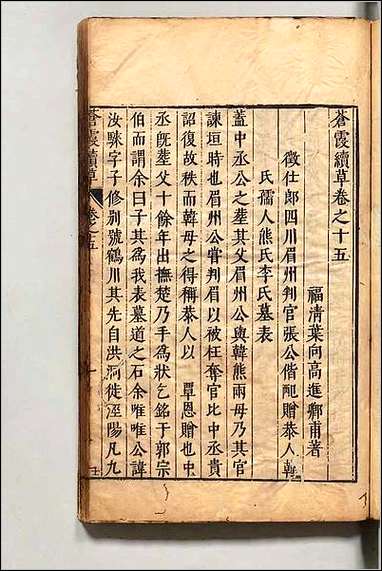 蒼霞續草卷之十五
福清葉向高進卿甫著
徵仕郎四川眉州判官張公偕配贈恭人韓
氏孺人熊氏李氏墓表
蓋中丞公之塟其父眉州公與韓熊兩母乃其官
諫垣時也眉州公嘗判眉以被枉奪官比中丞貴
詔復故秩而韓母之得稱恭人以 覃恩贈也中
丞旣塟父十餘年出撫楚乃手為狀乞銘于郭宗
伯而謂余曰子其為我表墓道之石余唯唯公諱
汝騋字子修別號鶴川其先自洪洞徙涇陽凡九
蒼霞續草 卷之十五 一